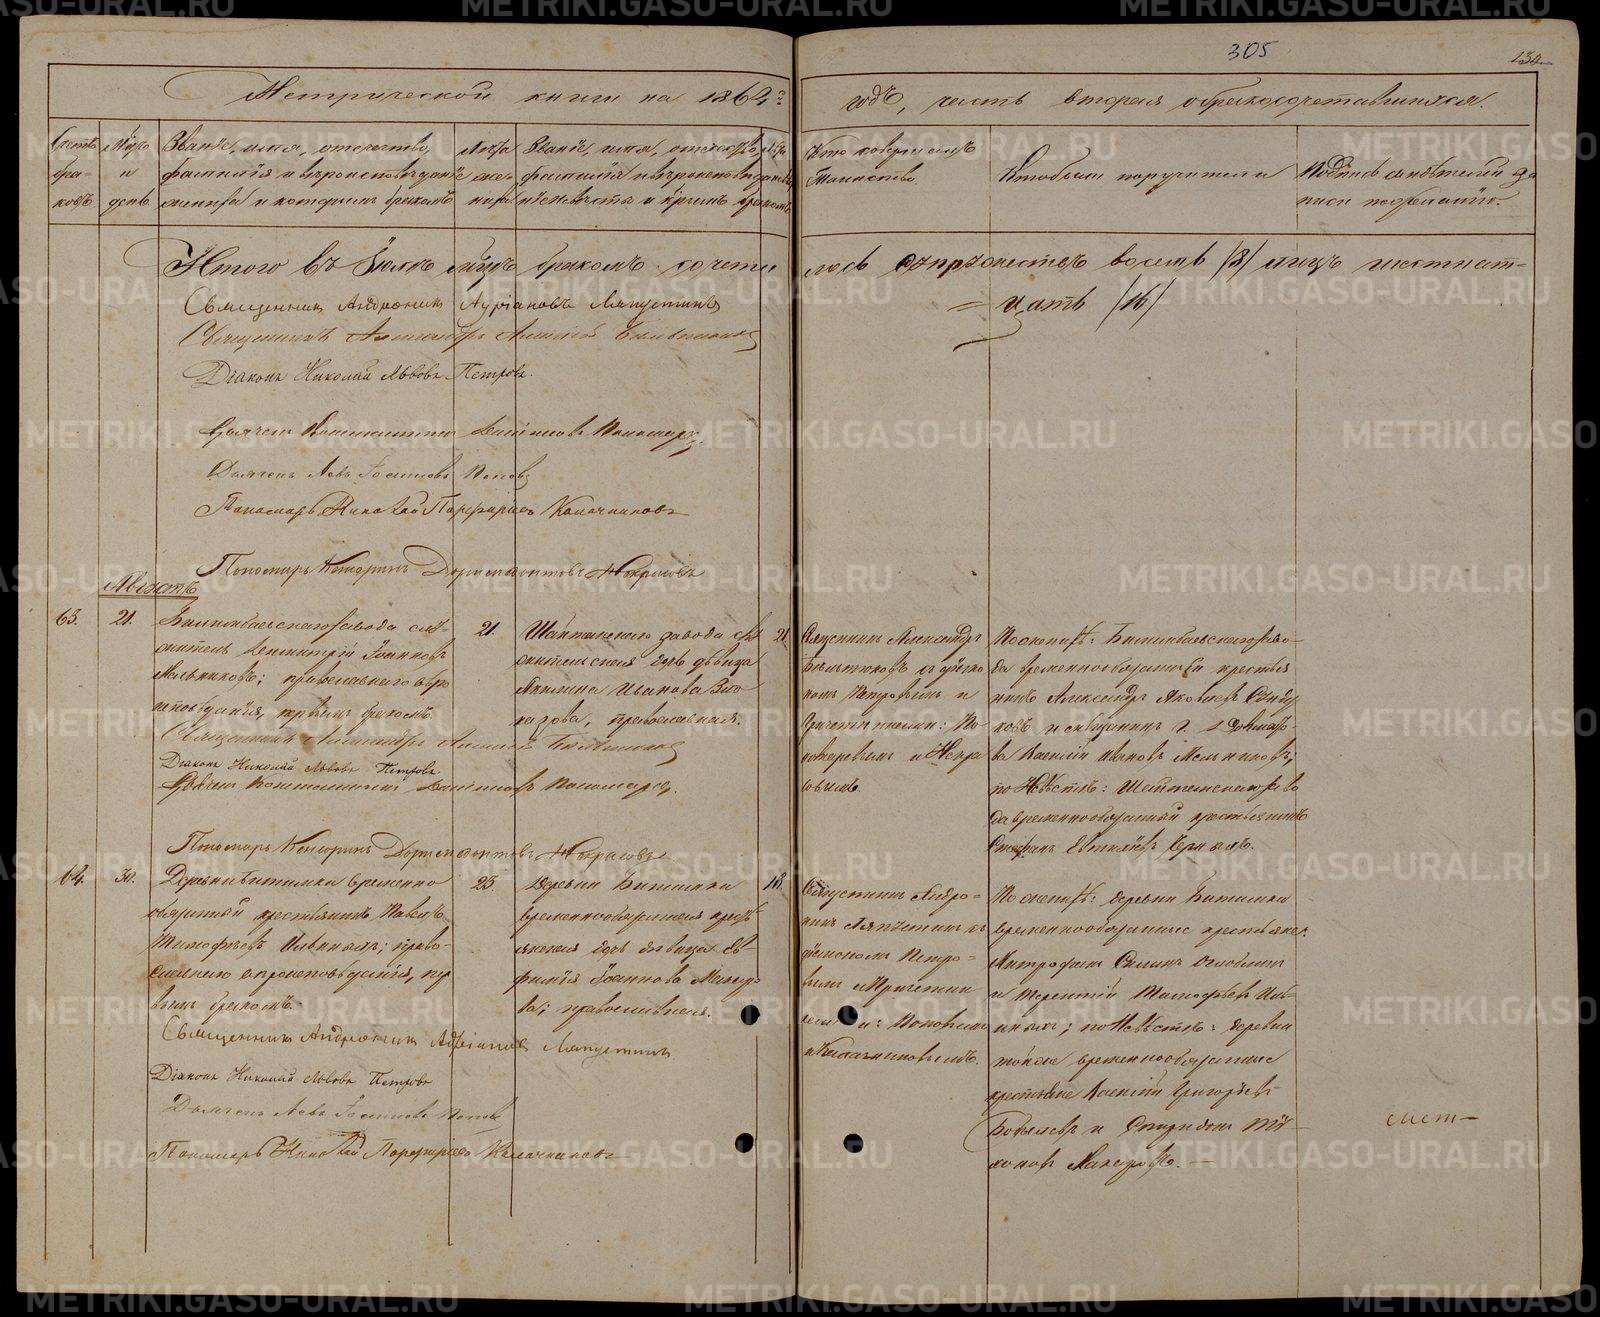 305
134
Метрической книги на 1864й
годъ, часть вторая о бракосочетавшихся.
Счетъ бра-ковъ.
Мѣсяцъ и день
Званіе, имя, отчество,
фамилія и вѣроисповѣданіе
жениха и которымъ бракомъ
Лѣта же-ниха
Званіе, имя, отечество,
фамилія и вѣроисповѣданіе
невѣсты и коимъ бракомъ
Кто совершалъ
Таинство.
Кто были поручители
Подпись свидѣтелей за-
писи по желанію.
Итого въ Іюлѣ мѣсяцѣ бракомъ сочета
лось супружествъ восемь /8/ лицъ шестнат-
цать /16/
Священникъ Андроникъ Адріановъ Ляпустинъ
Священникъ Александръ Алексіевъ Бильтюковъ
Діаконъ Николай Львовъ Петровъ.
Дьячекъ Константинъ Пономаревъ.
Дьячекъ Левъ Іоанновъ Поповъ
Пономарь Николай Порфирьевъ Калачниковъ
Пономарь Кенсоринъ Доримедонтовъ Некрасовъ
Августъ
63.
21.
Билимбаевскаго завода слу-
житель Іоанновъ
Мельниковъ; православнаго вѣро
исповѣданія, первымъ бракомъ.
21.
Шайтанскаго завода слу
жительская дочь дѣвица
Ивановна
православная.
21
Священникъ Александръ
Бильтюковъ съ діако
номъ Петровымъ и
причетниками: По
номаревымъ и Некра
совымъ.
По женихѣ: Билимбаевскаго заво-
да временнообязанный крестья
нинъ Александръ Яковлевъ
Василій Ивановъ Мельниковъ;
по Невѣстѣ: Шайтанскаго заво
да временнообязанный крестьянинъ
Священникъ Александръ Алексіевъ Бильтюковъ
Діаконъ Николай Львовъ Петровъ
Дьячекъ Константинъ Пономаревъ.
Пономарь Кенсоринъ Доримедонтовъ Некрасовъ
64.
30.
Деревни Битимки временно
обязанный крестьянинъ Павелъ
Тимофѣевъ право-
славнаго вѣроисповѣданія, пер
вымъ бракомъ.
23.
Деревни Битимки
временнообязаннаго крестъ
янская дочь дѣвица Ев-
фимія Іоаннова Макаро
ва; православная.
18.
Священникъ Андро-
никъ Ляпустинъ съ
діакономъ Петро-
вымъ и Причетни
ками: Поповымъ
и Калачниковымъ.
По женихѣ: деревни Битимки
временнообязанные крестьяне:
Митрофанъ
и Терентій Тимофѣевъ
по Невѣстѣ: деревни
тойже временнообязанные
крестьяне Василій Григорьевъ
Бобылевъ и Спиридонъ Ти-
хоновъ Макаровъ. —
Священникъ Андроникъ Адріановъ Ляпустинъ
Діаконъ Николай Львовъ Петровъ
Дьячекъ Левъ Іоанновъ Поповъ
Пономарь Николай Порфирьевъ Калачниковъ
METRIKI.GASO-URAL.RU